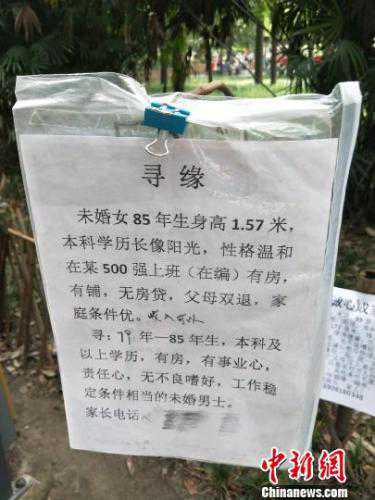 寻缘
未婚女85年生身高1.57米，
本科学历长像阳光，性格温和
在某500强上班（在编）有房，
有铺，无房贷，父母双退，家
庭条件优。收入可外
寻：79年—85年生，本科及
以上学历，有房，有事业心，
责任心，无不良嗜好，工作稳
定条件相当的未婚男士。
家长电话
中新网
Chinanews.com